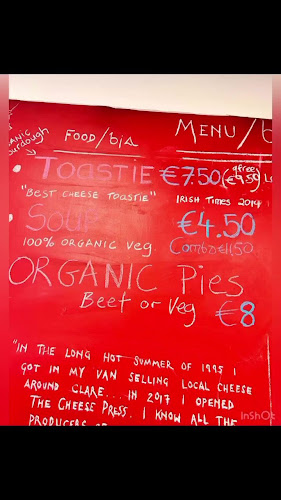 ORGANIC
sourdough
FOOD/bia
MENU/b
TOASTIE €7.50
"BEST CHEESE TOASTIE" IRISH TIMES 2014
SOUP €4.50
100% ORGANIC veg Combo
ORGANIC Pies
Beef or Veg €8
"IN THE LONG HOT SUMMER OF 1995 I
GOT IN MY VAN SELLING LOCAL CHEESE
AROUND CLARE... IN 2017 I OPENED
THE CHEESE PRESS. I KNOW ALL THE
PRODUCERS OF
InShOt